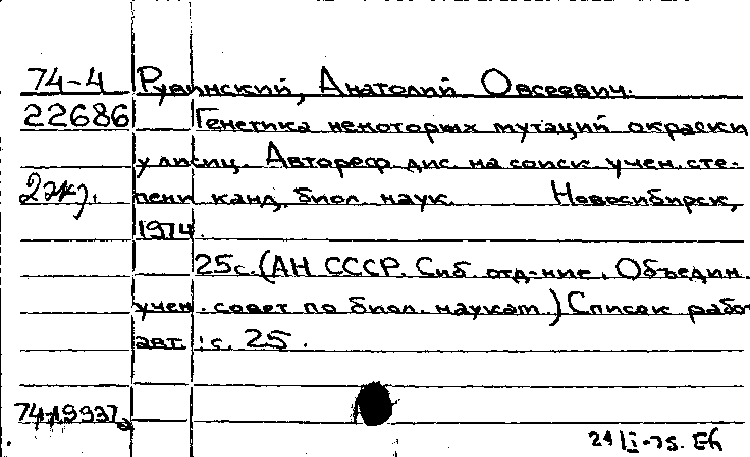 74-4 Рувинский, Анатолий Овсеевич.
22686 Генетика некоторых мутаций окраски
у лисиц. Автореф. дис. на соиск. учен. сте-
2 экз. пени канд. биол. наук. Новосибирск,
1974.
25 с. (АН СССР. Сиб. отд-ние. Объедин.
учен. совет по биол. наукам.) Список работ
авт.: с. 25.
74-19937а